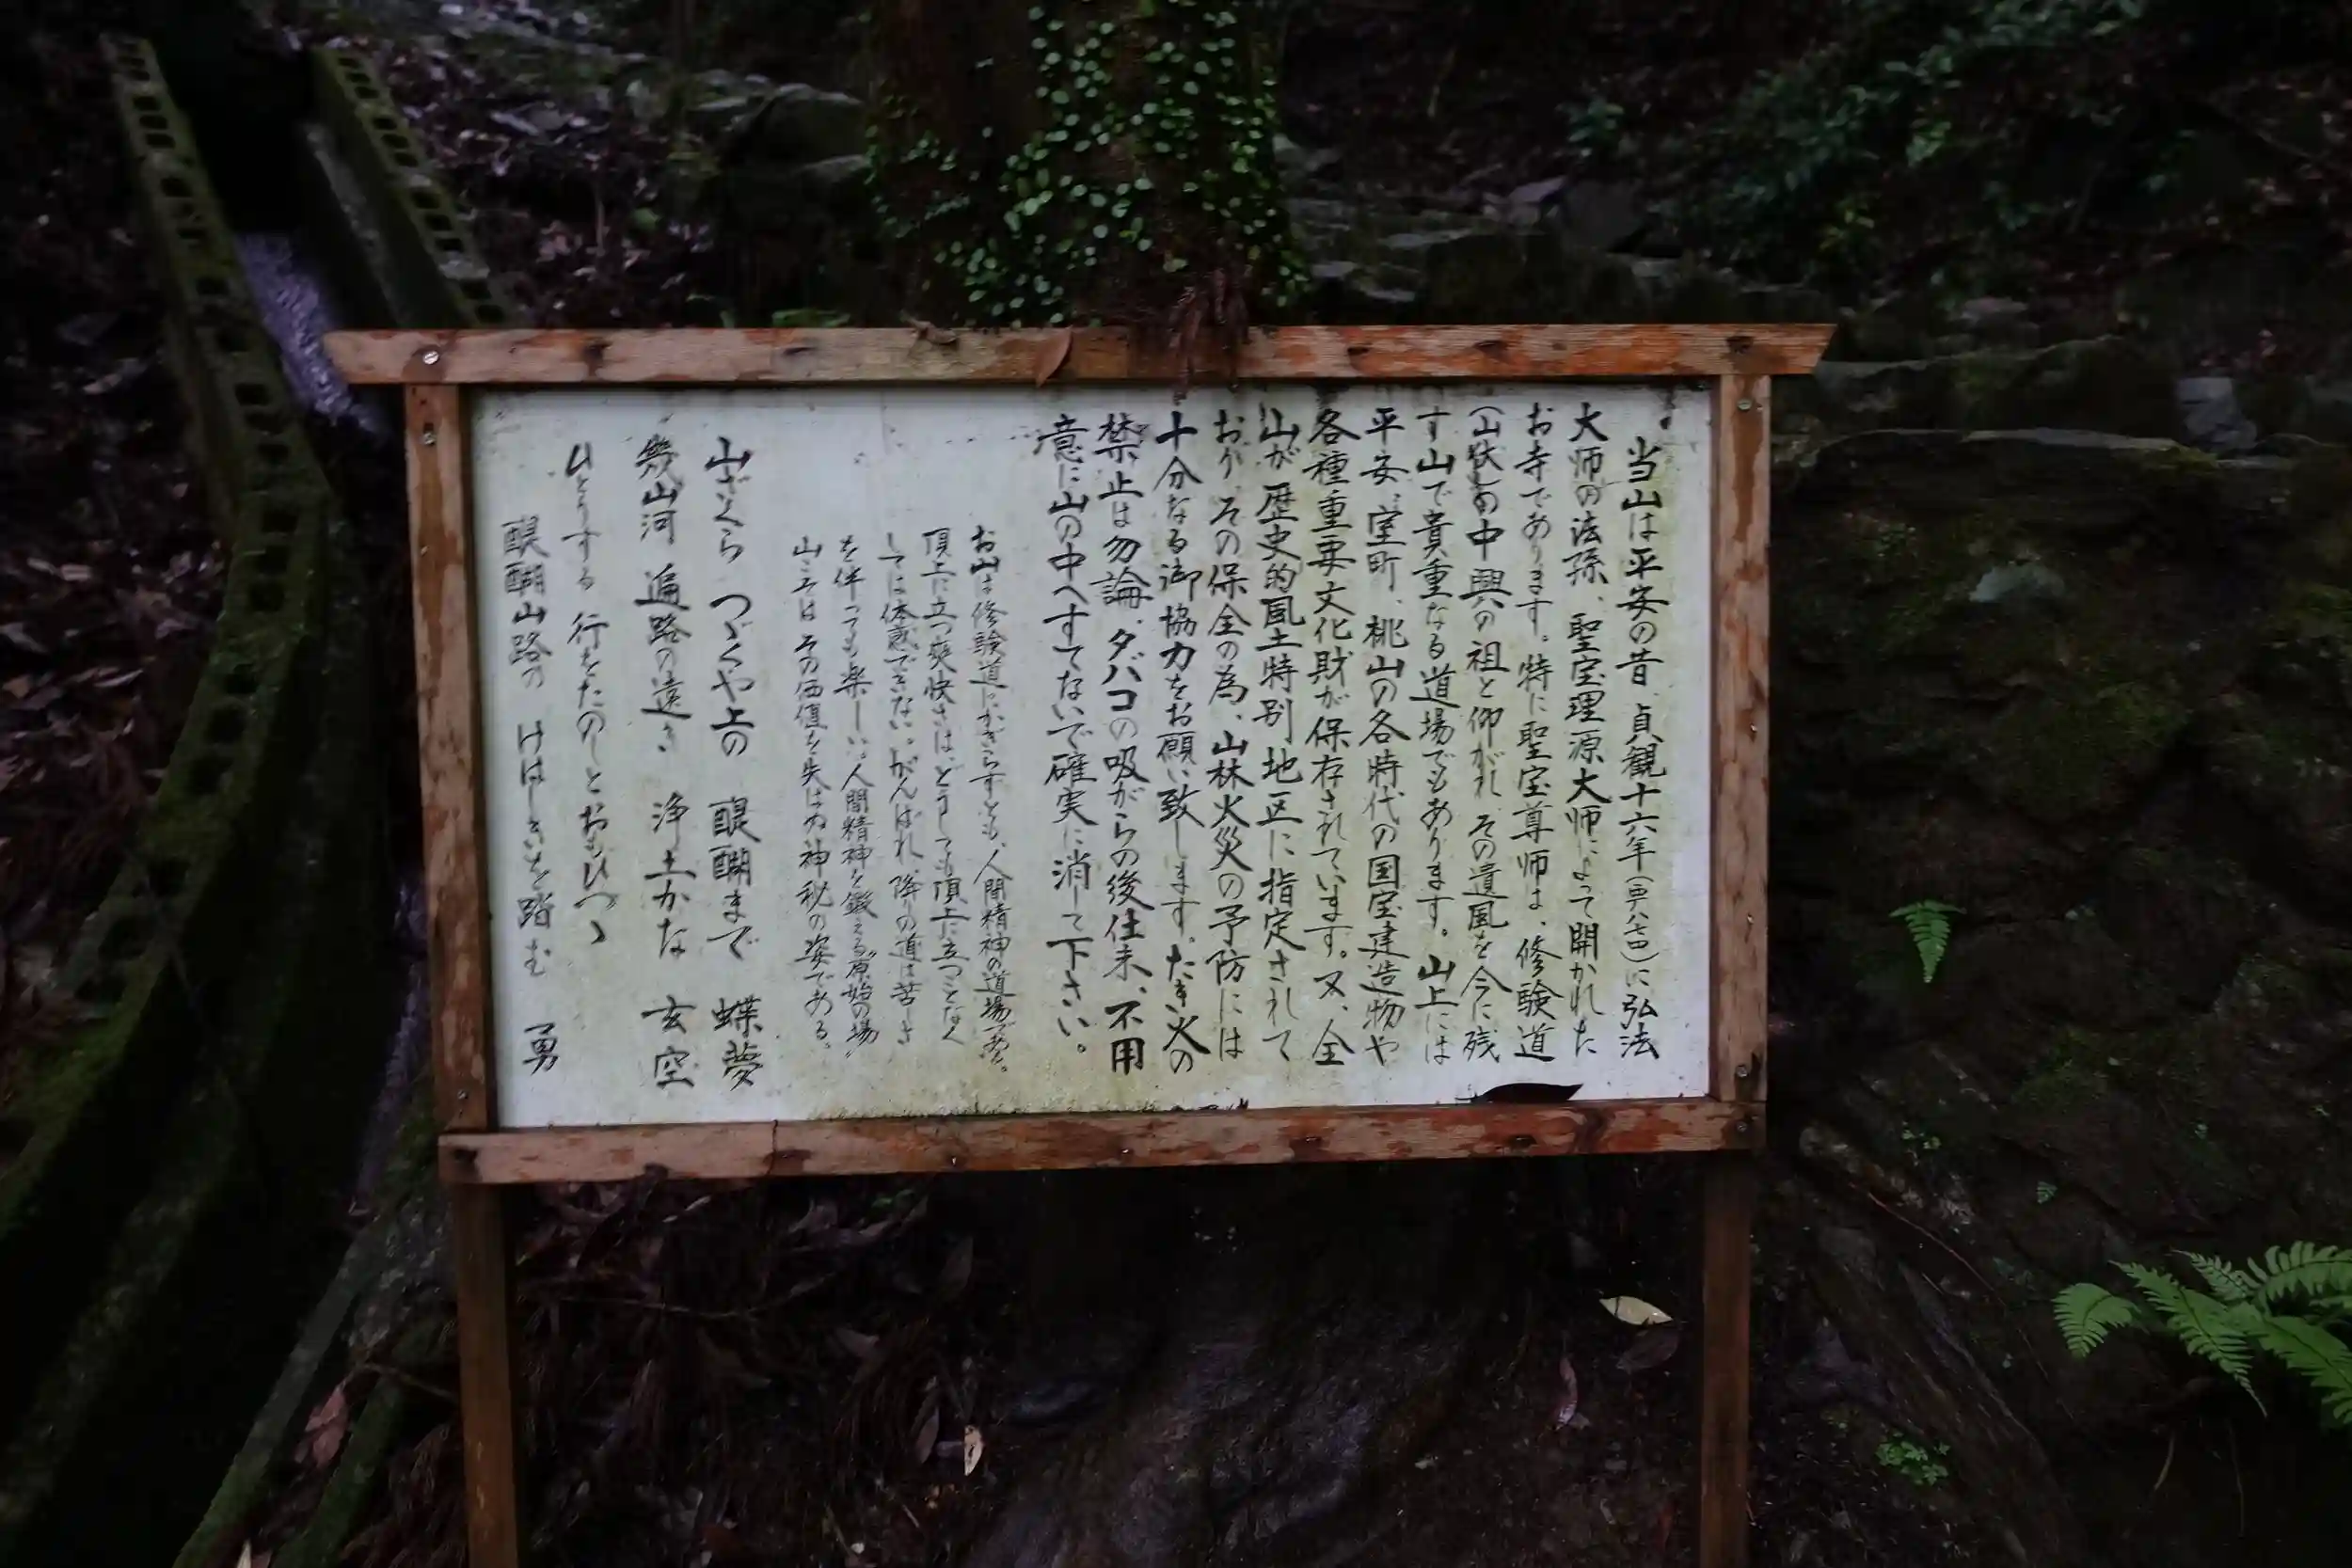 当山は平安の昔、貞観十六年(西暦八七四)に弘法
大師の法孫、聖宝理源大師によって開かれた
お寺であります。特に聖宝尊師は、修験道
(山伏)の中興の祖と仰がれ、その遺風を今に残
す山で貴重なる道場でもあります。山上には
平安、室町、桃山の各時代の国宝建造物や
各種重要文化財が保存されています。又、全
山が歴史的風土特別地区に指定されて
おり、その保全の為、山林火災の予防には
十分なる御協力をお願い致します。たき火の
禁止は勿論、タバコの吸がらの後仕末、不用
意に山の中へすてないで確実に消して下さい。
お山は修験道にかぎらずとも、人間精神の道場である。
頂上に立つ爽快さは、どうしても頂上に立つことなく
しては体感できない。がんばれ、降りの道は苦しさ
を伴っても楽しい。人間精神を鍛える“原始の場”
山こそは その価値を失はぬ神秘の姿である。
山ざくら つづくや上の 醍醐まで 蝶夢
幾山河 遍路の遠き 浄土かな 玄空
ひとりする 行をたのしとおもひつゝ
醍醐山路の けはしきを踏む 勇